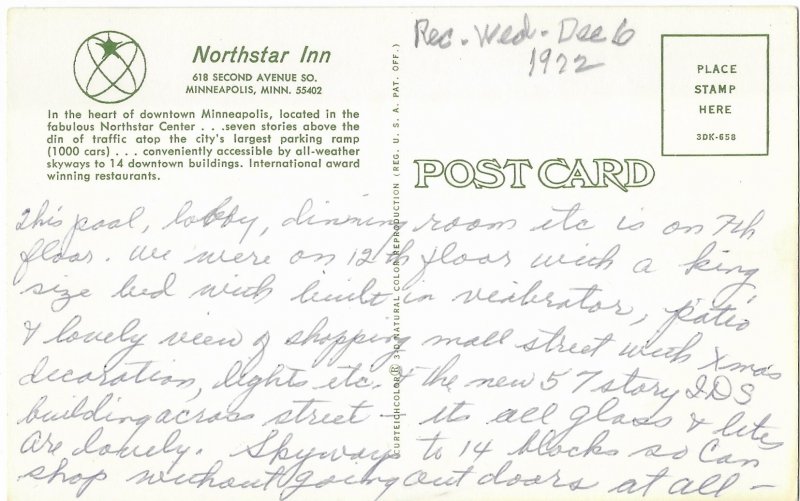 Northstar Inn
618 SECOND AVENUE SO.
MINNEAPOLIS, MINN. 55402
In the heart of downtown Minneapolis, located in the
fabulous Northstar Center . . .seven stories above the
din of traffic atop the city's largest parking ramp
(1000 cars) . . . conveniently accessible by all-weather
skyways to 14 downtown buildings. International award
winning restaurants.
Rec. Wed. Dec 6
1972
PLACE
STAMP
HERE
3DK-658
POST CARD
CURTEICHCOLOR® 3-D NATURAL COLOR REPRODUCTION (REG. U. S. A. PAT. OFF.)
This pool, lobby, dinning room etc is on 7th
floor. We were on 12th floor with a king
size bed with built in viabrator, patio
& lovely view of shopping mall street with Xmas
decoration, lights etc. & the new 57 story IDS
building across street - its all glass & lites
are lovely. Skyways to 14 blocks so can
shop without going out doors at all -